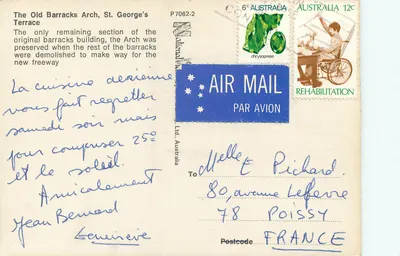 The Old Barracks Arch, St. George's
Terrace
The only remaining section of the
original barracks building, the Arch was
preserved when the rest of the barracks
were demolished to make way for the
new freeway
P 7062-2
Ltd., Australia
6c AUSTRALIA
chrysoprase
AUSTRALIA 12c
REHABILITATION
AIR MAIL
PAR AVION
La cuisine aérienne
vous fait regretter
samedi soir mais
pour compenser 25°
et le soleil.
Amicalement
Jean Bernard
Geneviève
To
Melle E Pichard.
80, avenue Lefevre
78 POISSY
Postcode FRANCE